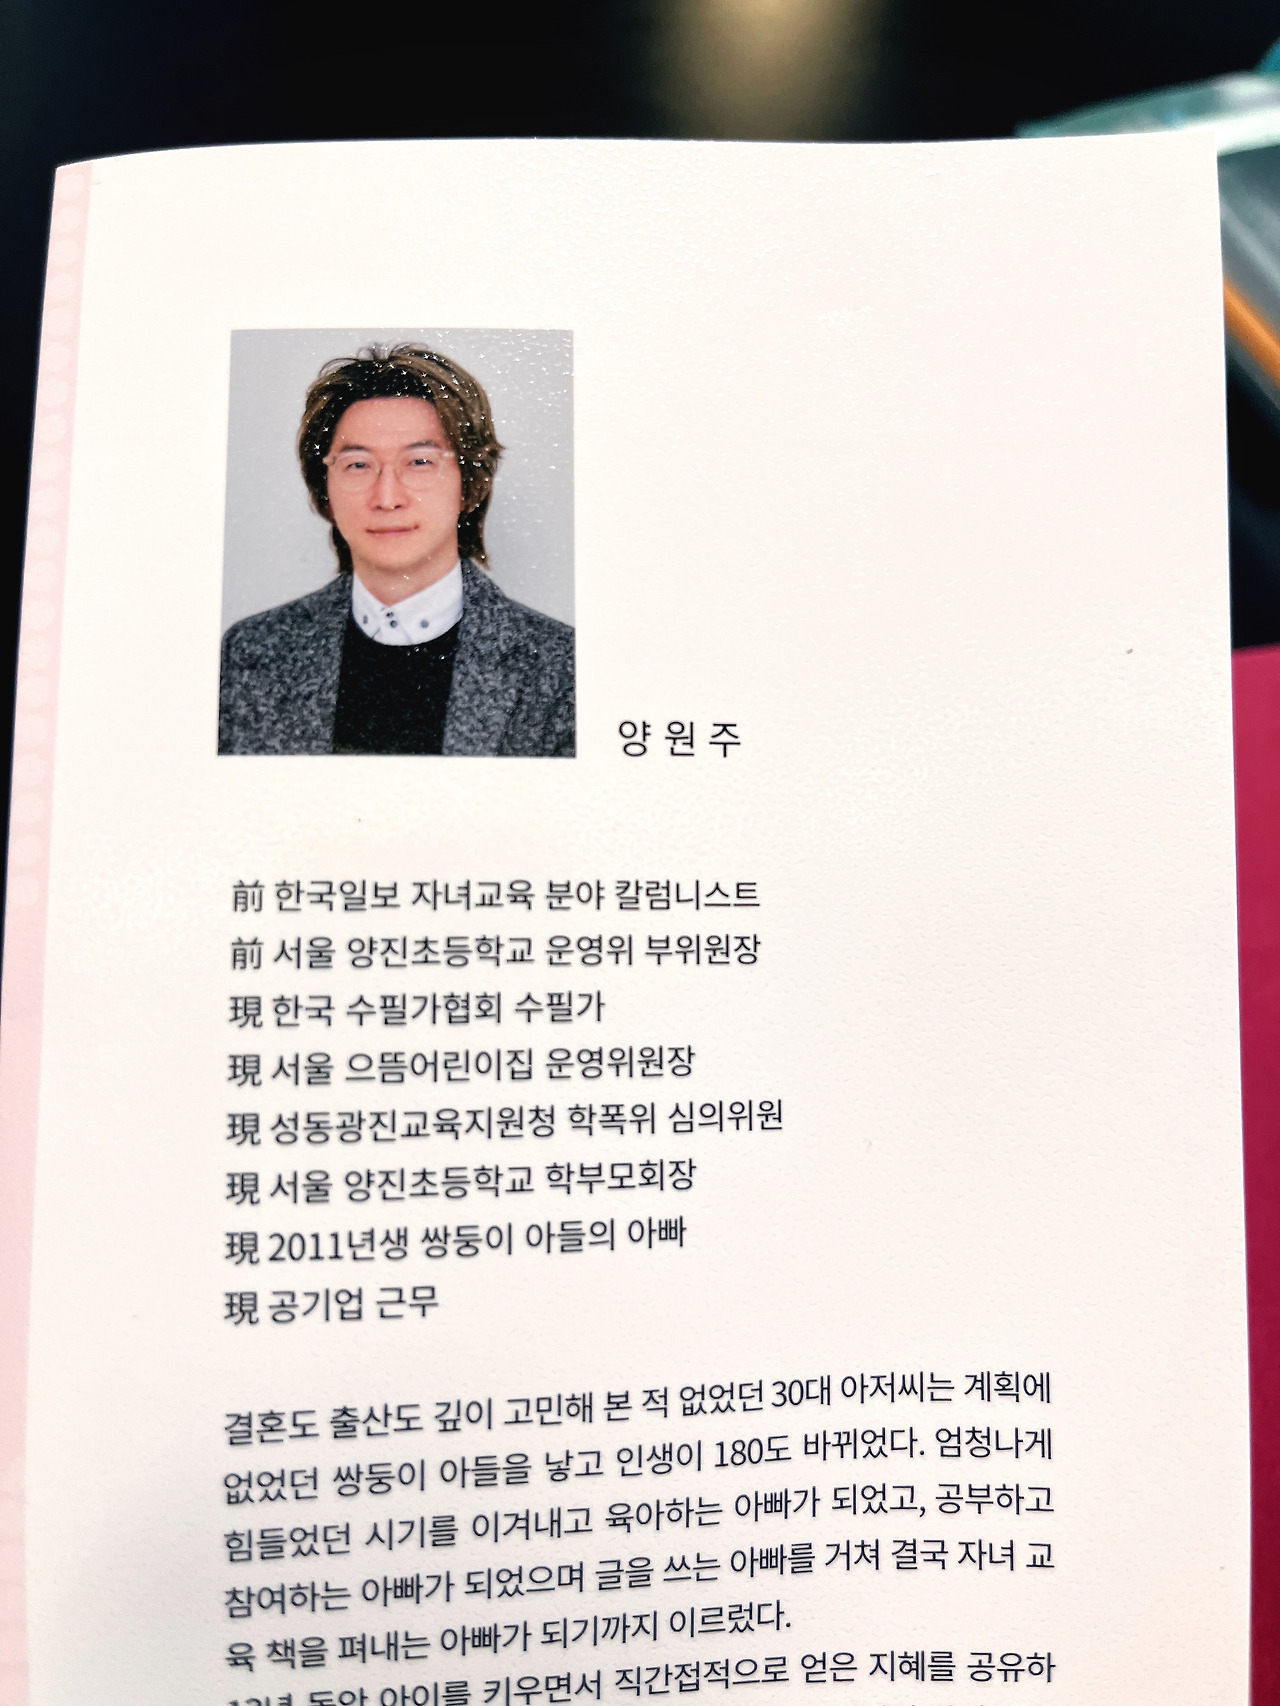 양 원 주
前 한국일보 자녀교육 분야 칼럼니스트
前 서울 양진초등학교 운영위 부위원장
現 한국 수필가협회 수필가
現 서울 으뜸어린이집 운영위원장
現 성동광진교육지원청 학폭위 심의위원
現 서울 양진초등학교 학부모회장
現 2011년생 쌍둥이 아들의 아빠
現 공기업 근무
결혼도 출산도 깊이 고민해 본 적 없었던 30대 아저씨는 계획에
없었던 쌍둥이 아들을 낳고 인생이 180도 바뀌었다. 엄청나게
힘들었던 시기를 이겨내고 육아하는 아빠가 되었고, 공부하고
참여하는 아빠가 되었으며 글을 쓰는 아빠를 거쳐 결국 자녀 교
육 책을 펴내는 아빠가 되기까지 이르렀다.
동안 아이를 키우면서 직간접적으로 얻은 지혜를 공유하